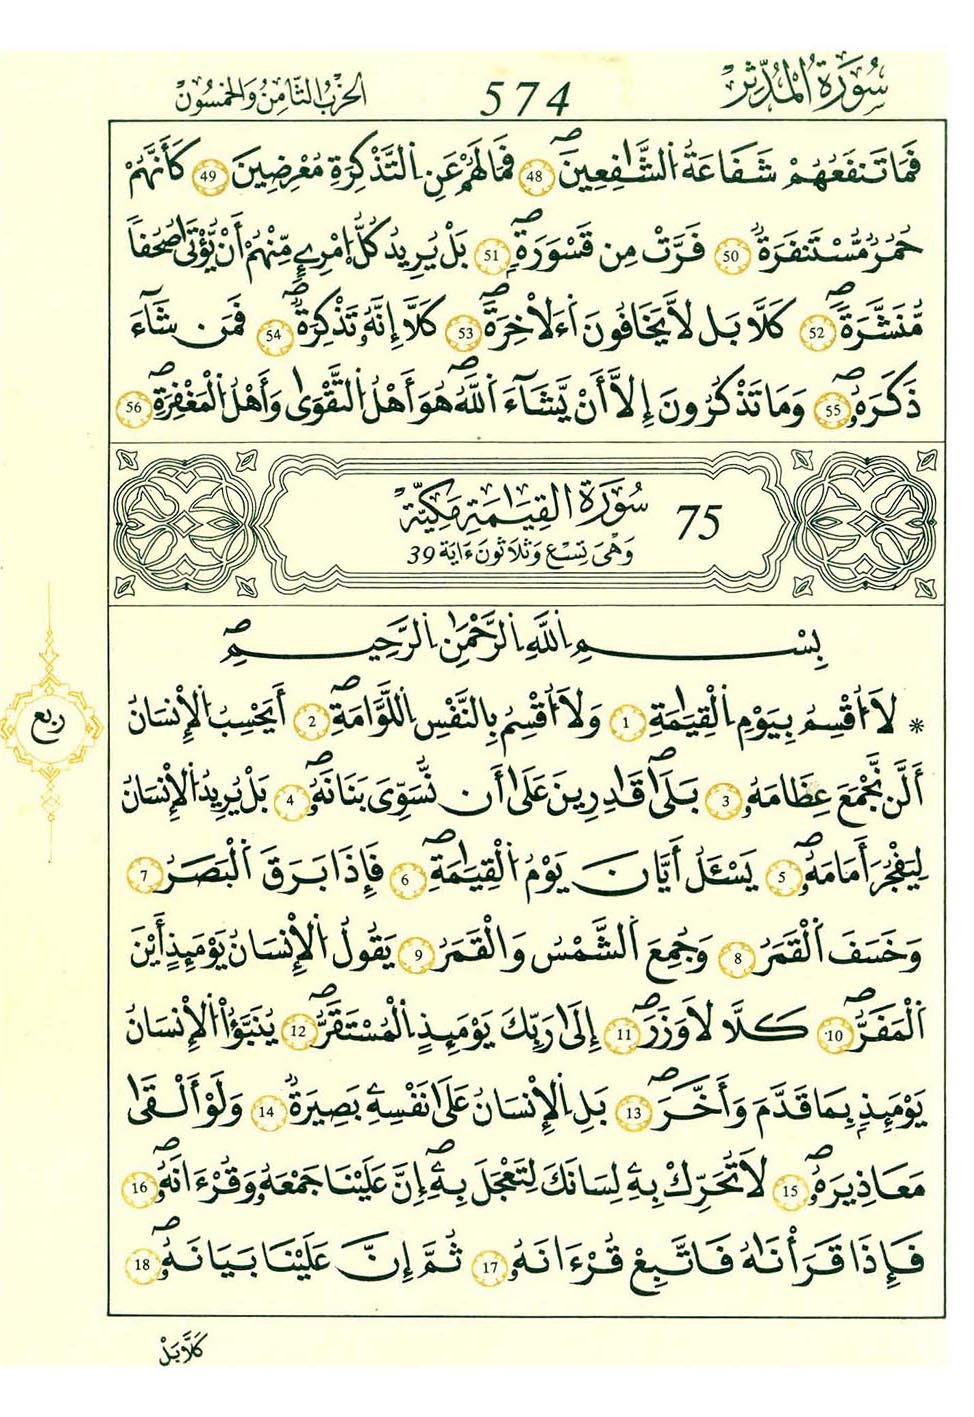 سُورَةُ الْمُدَّثِّر 574 الحِزْبُ الثَّامِنُ وَالخَمْسُون
فَمَا تَنفَعُهُمْ شَفَاعَةُ اُلشَّٰفِعِينَۖ 48 فَمَا لَهُمْ عَنِ اِلتَّذْكِرَةِ مُعْرِضِينَ 49 كَأَنَّهُمْ
حُمُرٞ مُّسْتَنفَرَةٞ 50 فَرَّتْ مِن قَسْوَرَةِۖ 51 بَلْ يُرِيدُ كُلُّ اُمْرِےٕٖ مِّنْهُمْ أَنْ يُّؤْتَىٰ صُحُفاٗ
مُّنَشَّرَةٗۖ 52 كَلَّا بَل لَّا يَخَافُونَ اَ۬ءَلَاخِرَةَۖ 53 كَلَّا إِنَّهُۥ تَذْكِرَةٞۖ 54 فَمَن شَآءَ
ذَكَرَهُۥۖ 55 وَمَا تَذْكُرُونَ إِلَّا أَنْ يَّشَآءَ اَللَّهُۖ هُوَ أَهْلُ اُلتَّقْوَىٰ وَأَهْلُ اُلْمَغْفِرَةِۖ 56
سُورَةُ القِيَٰمَةِ مَكِيَّة 75
وَهْىَ تِسْع وَثَلَاثُونَ ءَايَة 39
بِسْمِ اِللَّهِ اِلرَّحْمَٰنِ اِلرَّحِيمِۖ
* لَا أُقْسِمُ بِيَوْمِ اِلْقِيَٰمَةِ 1 وَلَا أُقْسِمُ بِالنَّفْسِ اِللَّوَّامَةِۖ 2 أَيَحْسِبُ اُلْإِنْسَانُ
أَلَّن نَّجْمَعَ عِظَامَهُۥ 3 بَلَىٰۖ قَٰدِرِينَ عَلَىٰ أَن نُّسَوِّىَ بَنَانَهُۥۖ 4 بَلْ يُرِيدُ اُلْإِنسَانُ
لِيَفْجُرَ أَمَامَهُۥۖ 5 يَسْـَٔلُ أَيَّانَ يَوْمُ اُلْقِيَٰمَةِۖ 6 فَإِذَا بَرَقَ اَلْبَصَرُ 7
وَخَسَفَ اَلْقَمَرُ 8 وَجُمِعَ اَلشَّمْسُ وَالْقَمَرُ 9 يَقُولُ اُلْإِنسَانُ يَوْمَئِذٍ أَيْنَ
اَلْمَفَرُّۖ 10 كَلَّا لَا وَزَرَۖ 11 إِلَىٰ رَبِّكَ يَوْمَئِذٍ اِلْمُسْتَقَرُّۖ 12 يُنَبَّؤُاْ اُلْإِنسَانُ
يَوْمَئِذِۢ بِمَا قَدَّمَ وَأَخَّرَۖ 13 بَلِ اِلْإِنسَانُ عَلَىٰ نَفْسِهِۦ بَصِيرَةٞ 14 وَلَوْ أَلْقَىٰ
مَعَاذِيرَهُۥۖ 15 لَا تُحَرِّكْ بِهِۦ لِسَانَكَ لِتَعْجَلَ بِهِۦۖ إِنَّ عَلَيْنَا جَمْعَهُۥ وَقُرْءَانَهُۥۖ 16
فَإِذَا قَرَأْنَٰهُ فَاتَّبِعْ قُرْءَانَهُۥ 17 ثُمَّ إِنَّ عَلَيْنَا بَيَانَهُۥۖ 18
رُبع
كَلَّا بَلْ